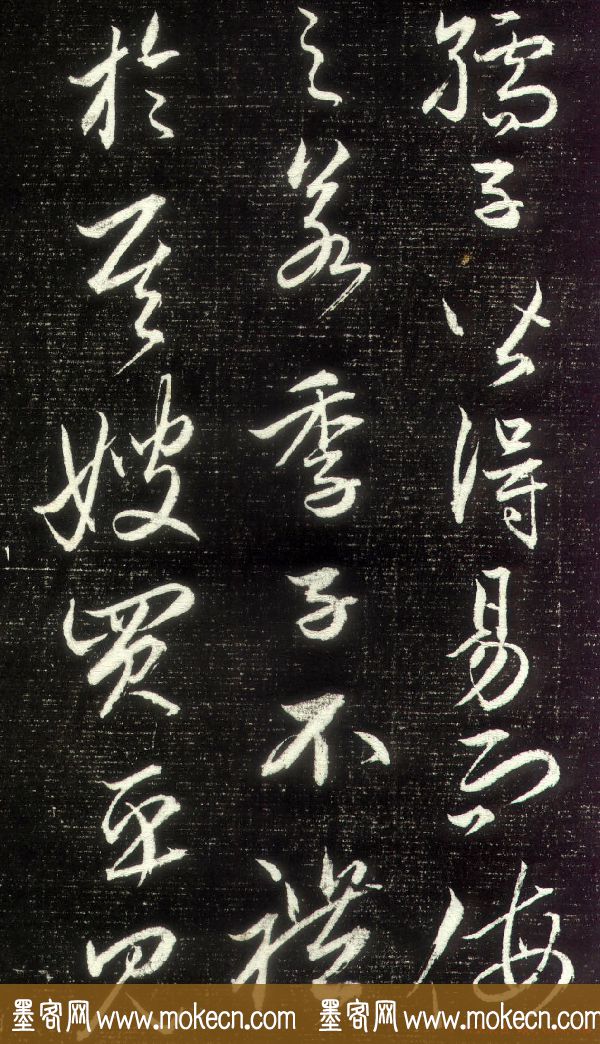 孺子皆得易而侮
之若季子不禮
於其嫂買臣見
墨客网 www.mokecn.com 墨客网 www.mokecn.com